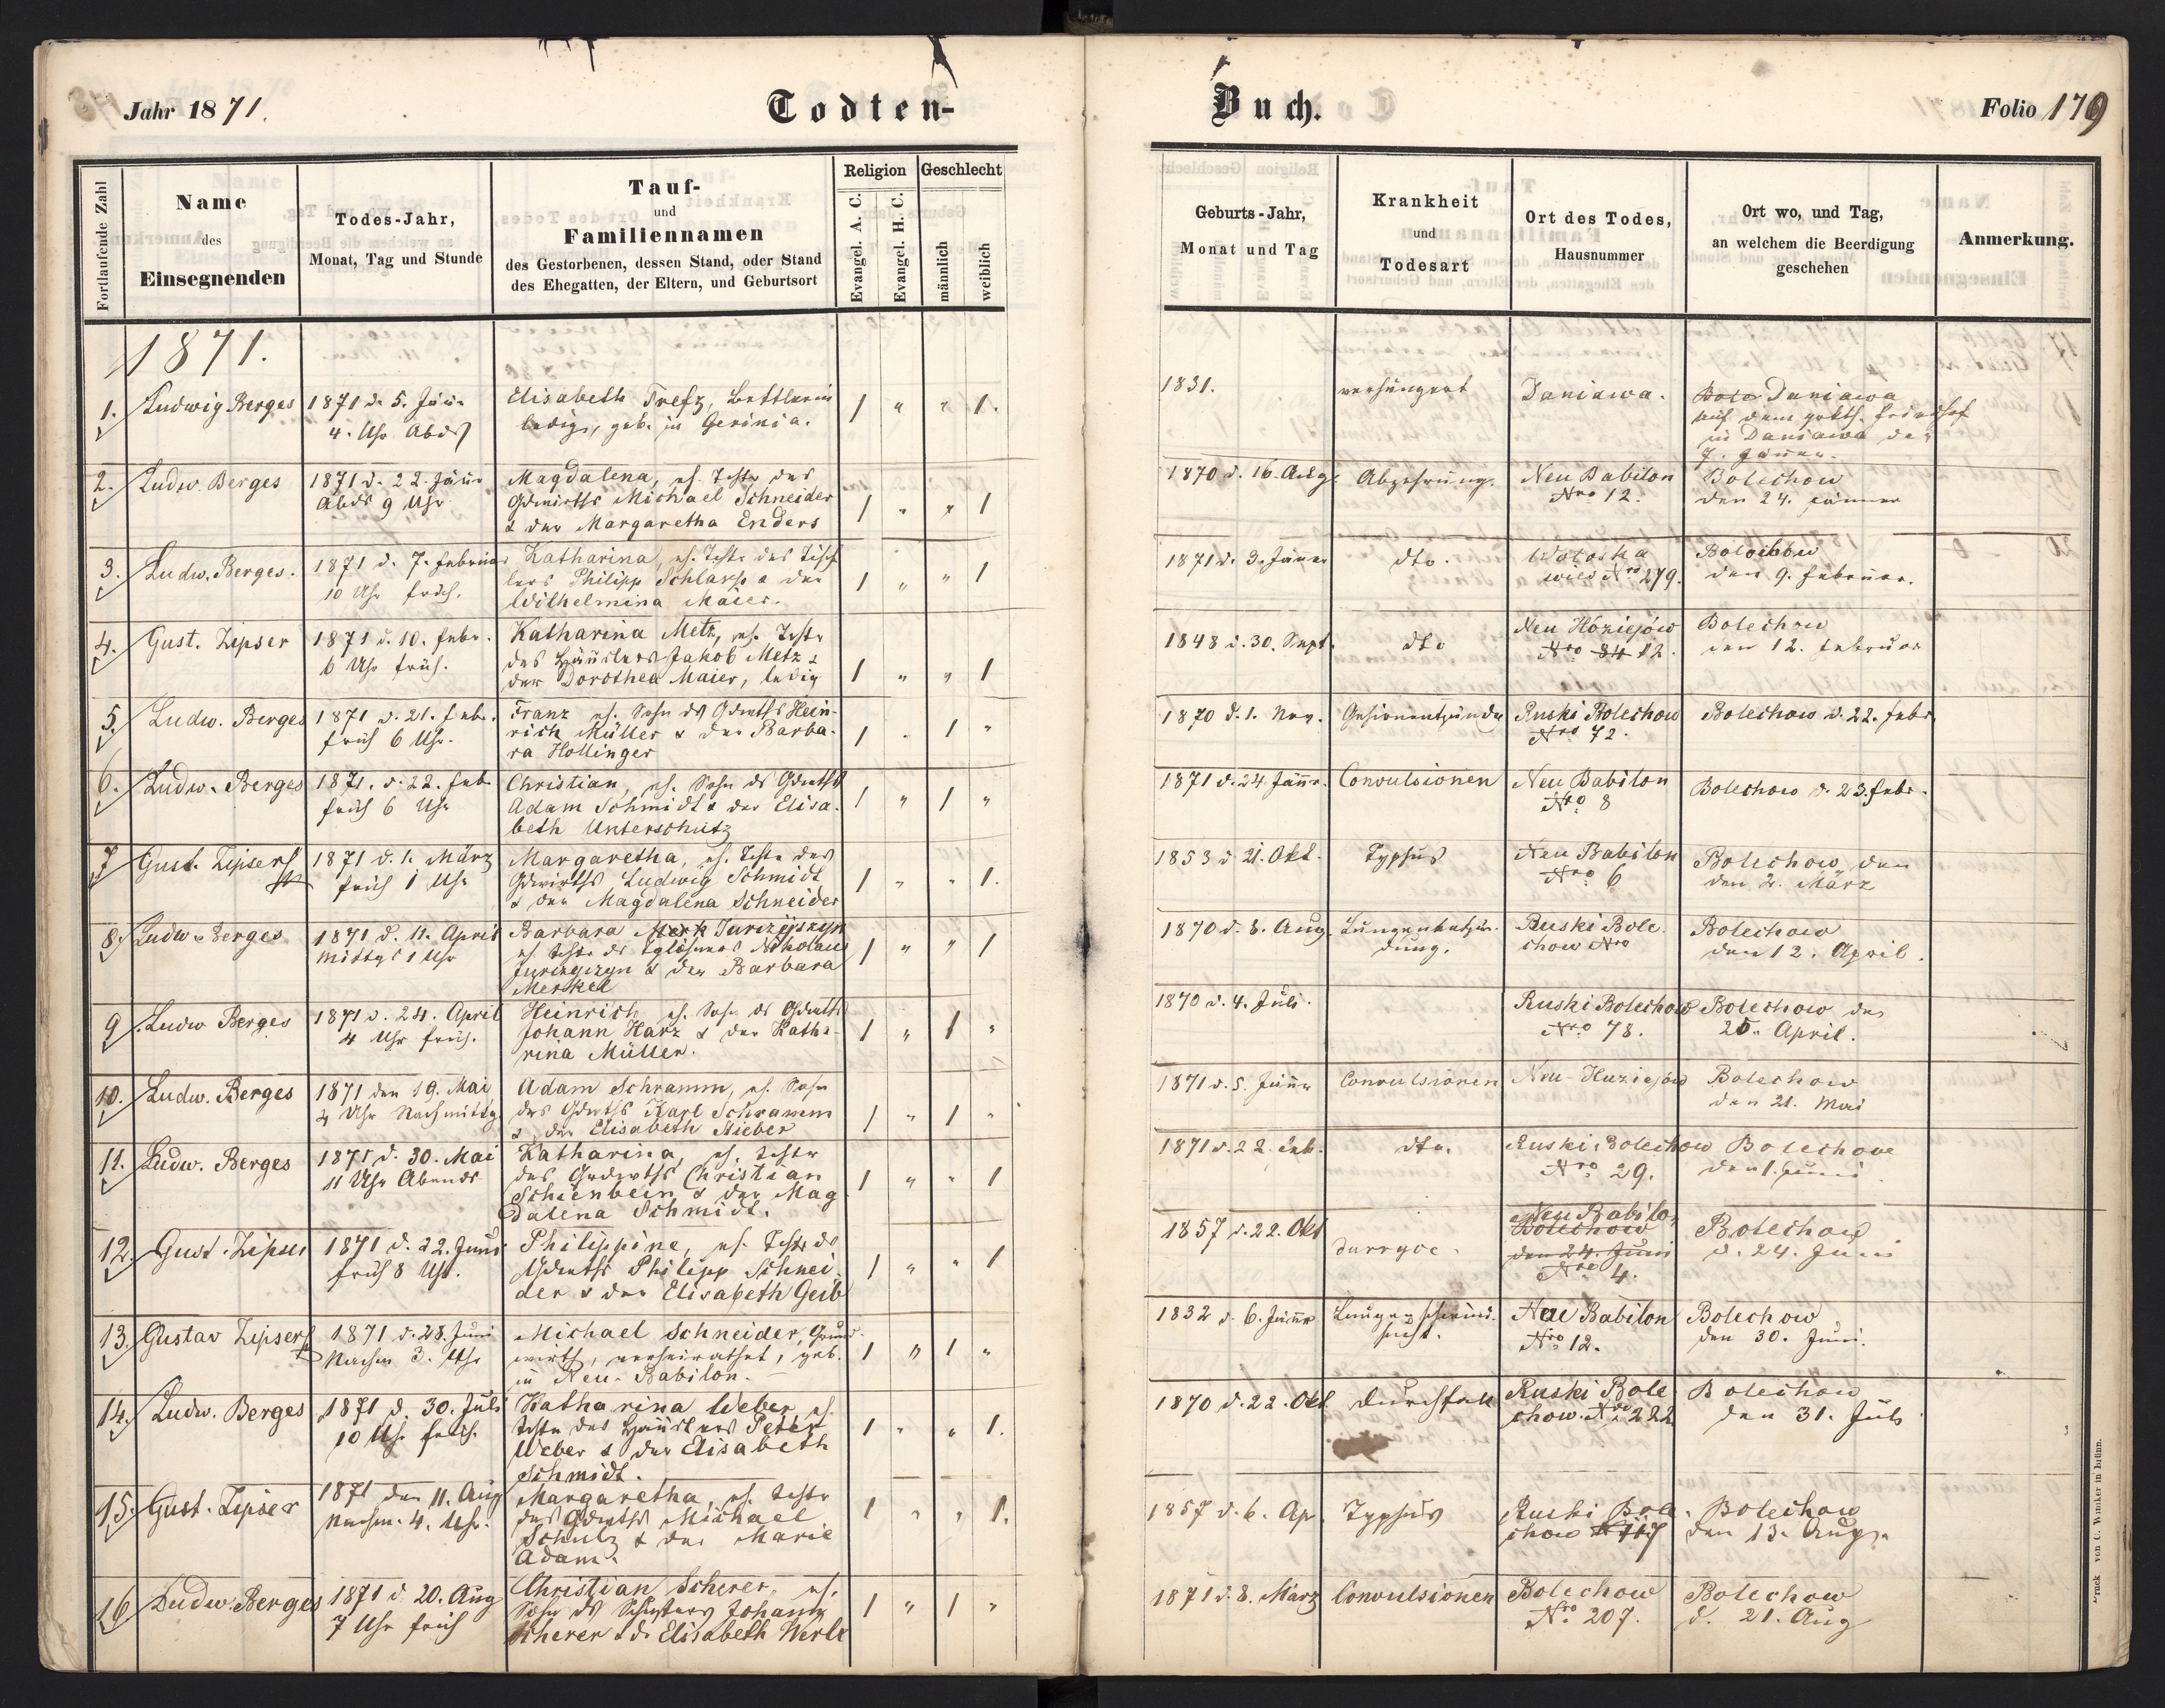 Jahr 1871.
Todten-
Fortlaufende Zahl
Name
des
Einsegnenden
Todes-Jahr,
Monat, Tag und Stunde
Tauf-
und
Familiennamen
des Gestorbenen, dessen Stand, oder Stand
des Ehegatten, der Eltern, und Geburtsort
Religion
Evangel. A. C.
Evangel. H. C.
Geschlecht
männlich
weiblich
1871.
1. Ludwig Berges
1871 d. 5. Jänn
4. Uhr Abds
Elisabeth Trefz, Bettlerin
ledig, geb. in Gerinia.
1 " " 1.
2. Ludw. Berges
1871 d. 22. Jänn
Abds 9 Uhr
Magdalena, eh. Tochter des
Gdwirths Michael Schneider
& der Margaretha Enders
1 " " 1
3. Ludw. Berges.
1871 d. 7. Februar
10 Uhr früh.
Katharina, eh. Tochter des Tisch
lers Philipp Schlarp & der
Wilhelmina Maier.
1 " " 1
4. Gust. Zipser
1871 d. 10. Febr.
6 Uhr früh.
Katharina Metz, eh. Tocht
des Häuslers Jakob Metz &
der Dorothea Maier, ledig
1 " " 1
5. Ludw. Berges
1871 d. 21. Feb.
früh 6 Uhr.
Franz eh. Sohn ds Gdwths Hein-
rich Müller & der Barba-
ra Hollinger
1 . 1 "
6. Ludw. Berges
1871. d. 22. Feb
früh 6 Uhr
Christian, eh. Sohn ds Gdwths
Adam Schmidt & der Elisa-
beth Unterschütz
1 " 1 "
7 Gust. Zipser
1871 d. 1. März
früh 1 Uhr
Margaretha, eh. Tocht des
Gdwirths Ludwig Schmidt
& der Magdalena Schneider
1 " " 1.
8. Ludw. Berges
1871 d. 11. April
Mittgs 1 Uhr
Barbara Jurizyszyn
eh. Tocht ds Nikolaus
& der Barbara
Merkel
1 " " 1
9. Ludw Berges
1871 d. 24. April
4 Uhr früh.
Heinrich eh. Sohn ds Gdwths
Johann Harz & der Katha-
rina Müller.
1 " 1 "
10. Ludw. Berges
1871 den 19. Mai
4 Uhr Nachmittg.
Adam Schramm, eh. Sohn
des Gdwths Karl Schramm
& der Elisabeth Stieber
1 " 1 "
11. Ludw. Berges
1871 d. 30. Mai
11 Uhr Abends
Katharina, eh. Tochter
des Grdwths Christian
Schienbein & der Mag
dalena Schmidt.
1 " " 1
12. Gust. Zipser
1871 d. 22. Juni
früh 8 Uhr.
Philippine, eh. Tocht ds
Gdwths Philipp Schnei-
der & der Elisabeth Geib
1 " " 1
13. Gustav Zipser
1871 d. 28. Juni
Nachm 3. Uhr
Michael Schneider, Grund-
wirth, verheirathet, geb.
in Neu-Babilon.
1 " 1 "
14. Ludw. Berges
1871 d. 30. Juli
10 Uhr früh.
Katharina Weber eh.
Tocht des Häuslers Peter
Weber & der Elisabeth
Schmidt.
1 " " 1.
15. Gust. Zipser
1871 den 11. Aug
Nachm. 4. Uhr.
Margaretha, eh. Tocht
des Gdwths Michael
Schulz & der Marie
Adam.
1 " " 1.
16 Ludw Berges
1871 d. 20. Aug
7 Uhr früh
Christian Scherer, eh.
Sohn ds Schusters Johann
Scherer & d. Elisabeth Werle
1 " 1 "
Buch.
Folio 179
Geburts-Jahr,
Monat und Tag
Krankheit
und
Todesart
Ort des Todes,
Hausnummer
Ort wo, und Tag,
an welchem die Beerdigung
geschehen
Anmerkung.
1831.
verhungert
Daniawa.
Daniawa
auf dem Friedhof
in Daniawa den
7. Jänner.
1870 d. 16. Aug.
Abzehrung.
Neu Babilon
Nro 12.
Bolechow
den 24. Jänner
1871 d. 3. Jänner
dto.
Wołoska
wies Nro 279.
Bolechow
den 9. Februar.
1848 d. 30. Sept.
dto
Neu Hoziejów
Nro 84 12.
Bolechow
den 12. Februar
1870 d. 1. Nov.
Gehirnentzündg
Ruski Bolechow
Nro 72.
Bolechow d. 22. Febr.
1871 d. 24. Jänn.
Convulsionen
Neu Babilon
Nro 8
Bolechow d. 23. Febr.
1853 d. 21. Okt.
Typhus
Neu Babilon
Nro 6
Bolechow den
den 2. März
1870 d. 8. Aug.
Lungenentzün-
dung.
Ruski Bole-
chow Nro
Bolechow
den 12. April.
1870 d. 4. Juli.
Ruski Bolechow
Nro 78.
Bolechow den
25. April.
1871 d. 5. Jänn
Convulsionen
Neu-Huziejów
Bolechow
den 21. Mai
1871 d. 22. Feb.
dto.
Ruski Bolechow
Nro 29.
Bolechow
den 1. Juni
1857 d. 22. Okt
Neu Babilon
Bolechow
den 24. Juni
Nro 4.
Bolechow
d. 24. Juni
1832 d. 6. Jänn
Lungenschwind-
sucht.
Neu Babilon
Nro 12.
Bolechow
den 30. Juni.
1870 d. 22. Okt
Durchfall
Ruski Bole
chow. Nro 222
Bolechow
den 31. Juli
1857 d. 6. Ap.
Typhus
Ruski Bole-
chow 117
Bolechow
den 13. Aug.
1871 d. 8. März
Convulsionen
Bolechow
Nro 207.
Bolechow
d. 21. Aug
Druck von C. Winiker in Brünn.